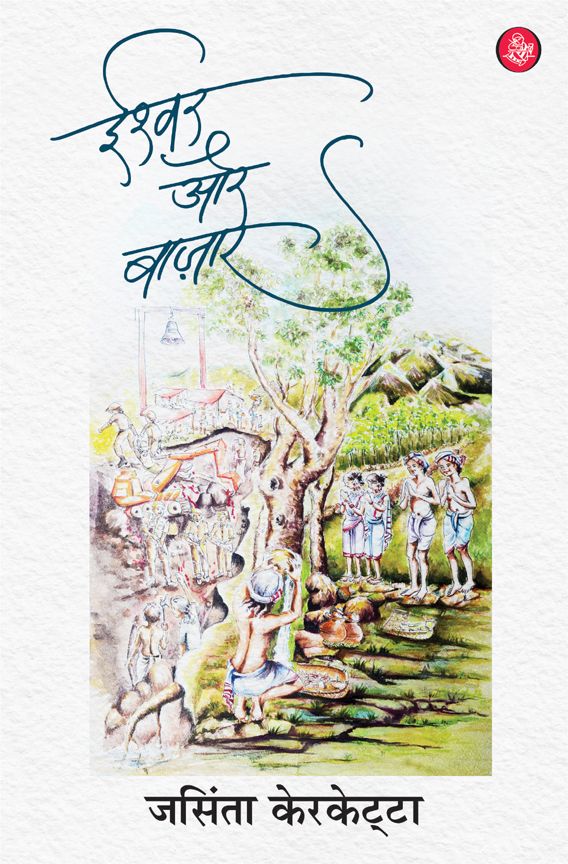 ईश्वर
और
बाज़ार
जसिंता केरकेट्टा